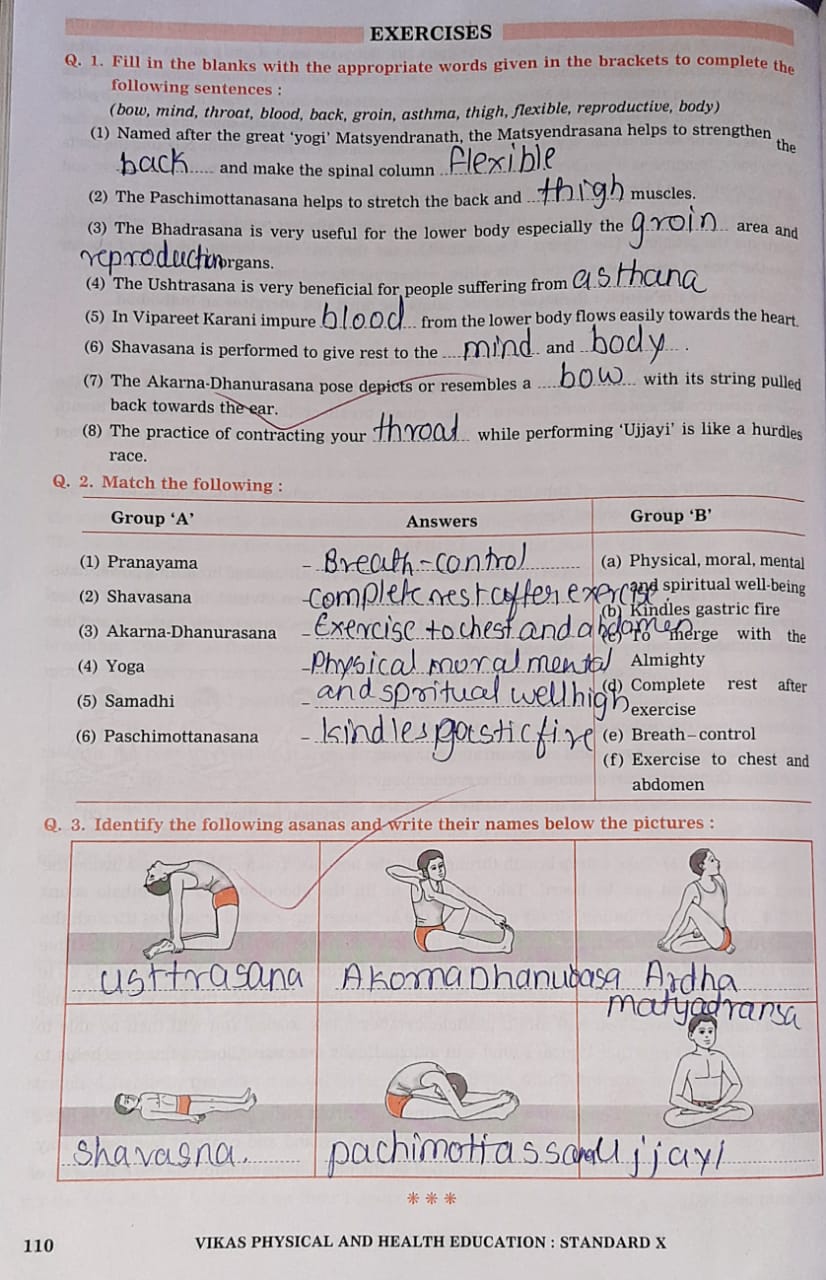 EXERCISES
Q. 1. Fill in the blanks with the appropriate words given in the brackets to complete the
following sentences :
(bow, mind, throat, blood, back, groin, asthma, thigh, flexible, reproductive, body)
(1) Named after the great 'yogi' Matsyendranath, the Matsyendrasana helps to strengthen the
back ..... and make the spinal column .. flexible
(2) The Paschimottanasana helps to stretch the back and ... thigh muscles.
(3) The Bhadrasana is very useful for the lower body especially the groin .. area and
reproduction organs.
(4) The Ushtrasana is very beneficial for people suffering from asthana
(5) In Vipareet Karani impure blood ... from the lower body flows easily towards the heart.
(6) Shavasana is performed to give rest to the .... mind .. and .. body ... .
(7) The Akarna-Dhanurasana pose depicts or resembles a ..... bow ... with its string pulled
back towards the ear.
(8) The practice of contracting your throat .. while performing 'Ujjayi' is like a hurdles
race.
Q. 2. Match the following :
Group 'A' Answers Group 'B'
(1) Pranayama – Breath-control (a) Physical, moral, mental
and spiritual well-being
(2) Shavasana – complete rest after exercise (b) Kindles gastric fire
(3) Akarna-Dhanurasana – Exercise to chest and abdomen (c) To merge with the
Almighty
(4) Yoga – Physical moral mental
(5) Samadhi – and spritual wellhigh (d) Complete rest after
exercise
(6) Paschimottanasana – kindles gastic fire (e) Breath–control
(f) Exercise to chest and
abdomen
Q. 3. Identify the following asanas and write their names below the pictures :
usttrasana Akorna Dhanubasa Ardha
matyadransa
shavasna. pachimottassana Ujjayi
***
110 VIKAS PHYSICAL AND HEALTH EDUCATION : STANDARD X